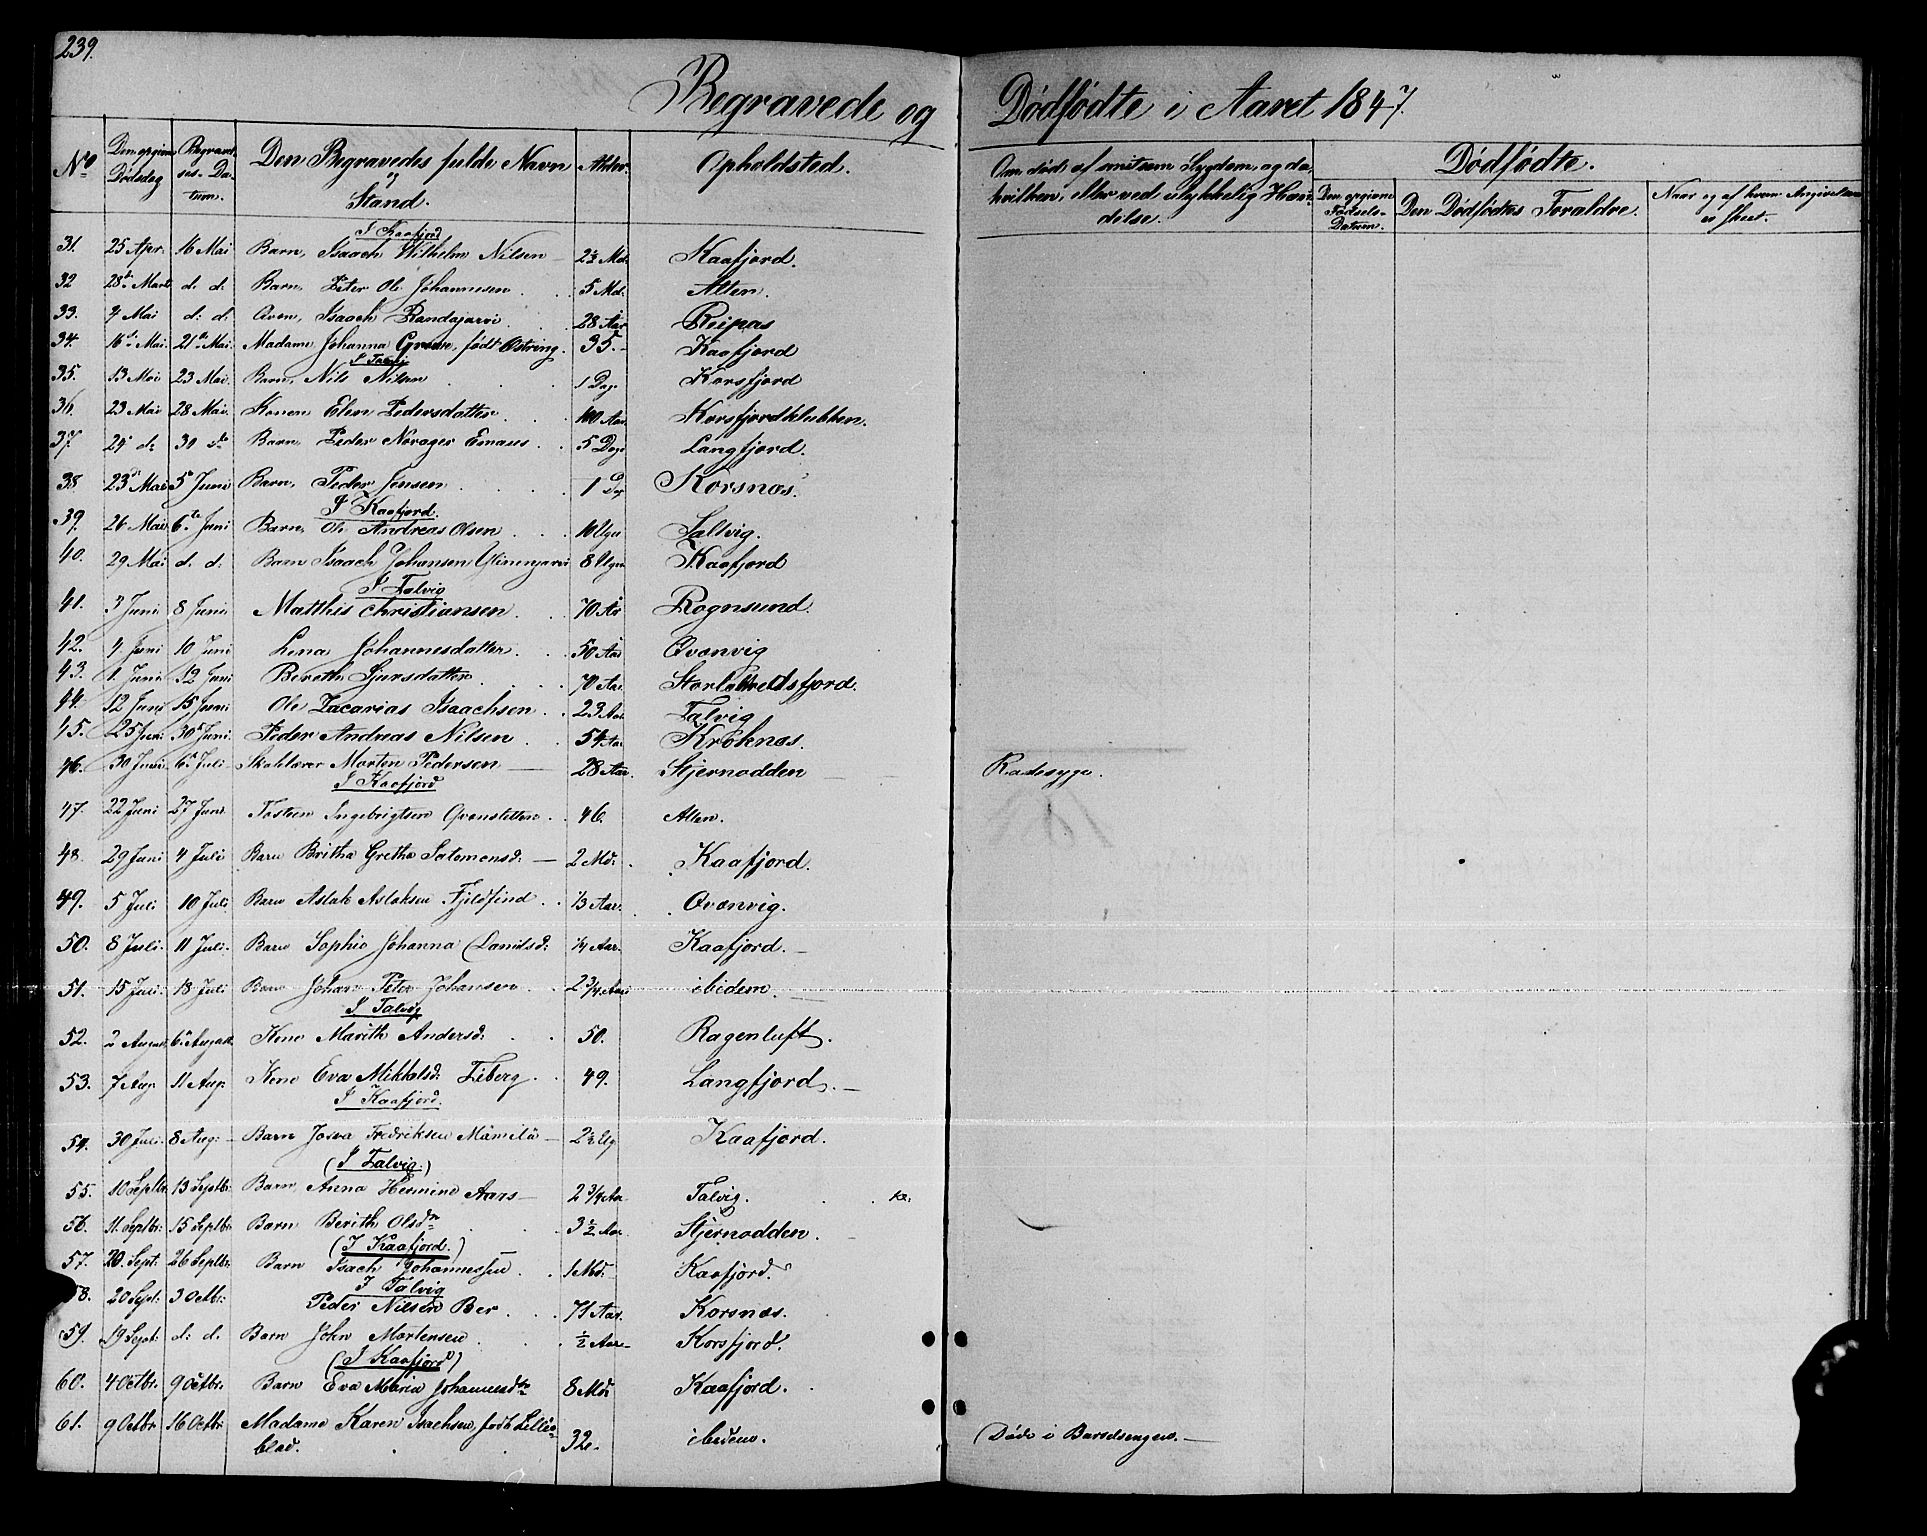 239.
Begravede og Dødfødte i Aaret 1847.
No Den opgivne Dødsdag Begravelses-Datum. Den Begravedes fulde Navn og Stand. Alder. Opholdsted. Om død af smitsom Sygdom, og da hvilken, eller ved ulykkelig Hændelse. Dødfødte. Den opgivne Fødsels-Datum. Den Dødfødtes Forældre. Naar og af hvem Angivelsen er skeet.
I Kaafjord
31. 25 Apr. 16 Mai Barn, Isaach Wilhelm Nilsen 2½ Md. Kaafjord.
32 28de Marts d. d. Barn, Peter Ole Johannesen 5 Md. Alten.
33. 7 Mai d: d: Qven, Isaach Randajarvi 28 Aar Reipas
34. 16de Mai. 21de Mai. Madame Johanna født Østring. 35.- Kaafjord
I Talvig
35. 13 Mai 23 Mai. Barn, Nils Nilsen 1 Dag Korsfjord
36. 23 Mai 28 Mai. Konen Elen Pedersdatter 100 Aar. Korsfjordklubben.
37. 24 d: 30 de Barn, Peder Norager Emaus 5 Dage Langfjord.
38. 23de Mai 5 Juni Barn, Peder Jensen 1 D Korsnæs.
I Kaafjord.
39. 26 Mai 6te Juni Barn, Ole Andreas Olsen 10 Uger Talvig.
40. 29 Mai d. d: Barn Isaach Johansen 8 Uger Kaafjord
I Talvig
41. 3 Juni 8 Juni Matthis Christiansen 70 Aar Rognsund.
42. 4 Juni 10 Juni Lena Johannesdatter 50 Aar Qvænvig
43. 1. Juni 12 Juni Bereth Sjursdatter 70 Aar. Storlekkredsfjord.
44. 12 Juni 15 Juni Ole Zacarias Isaachsen 23 Aar Talvig
45. 25 Juni 30 Juni. Peder Andreas Nilsen 54 Aar Kroknæs.
46. 30 Juni 6 Juli Skolelærer Morten Pedersen 28 Aar. Stjernodden Radesyge.
I Kaafjord
47. 22 Juni 27 Juni Tosten Ingebrigtsen Qvænstetten 46. Alten.
48. 29 Juni 4 Juli Barn Britha Gretha Salomonsd: 2 Md. Kaafjord.
49. 5 Juli 10 Juli Barn Aslak Aslaksen Fjeldfind 1/3 Aar. Qvænvig.
50. 8 Juli. 11 Juli. Barn Sophie Johanna Danielsd: 1/4 Aar. Kaafjord.
51. 15 Juli. 18 Juli Barn Johan Peter Johansen 2 3/4 Aar ibidem.
I Talvig
52. 2 August 6 August. Kone Marith Andersd: 50. Ragenluft.
53. 7 Aug. 11 Aug. Kone Eva Mikkelsd: Fiberg 49. Langfjord.
I Kaafjord.
54. 30 Juli 8 Aug: Barn Josva Fredriksen Mämilä 2½ Ug Kaafjord.
(I Talvig.)
55. 10 Septbr. 13 Septbr. Barn Anna Hermine Aars 2 3/4 Aar Talvig.
56. 11 Septbr. 15 Septbr. Barn Berith Olsdr 3½ Aar. Stjernodden.
(I Kaafjord.)
57. 20. Sept: 26 Septbr. Barn Isach Johannesen 1 Md: Kaafjord.
I Talvig
58. 20 Sept: 3 Octbr: Peder Nilsen Ber 71 Aar. Korsnæs.
59. 19 Sept: d: d. Barn John Mortensen ½ Aar Korsfjord.
(I Kaafjord)
60. 4 Octbr. 9 Octbr. Barn Eva Maria Johannesdtr 8 Md: Kaafjord.
61. 9 Octbr. 16 Octbr Madame Karen Isachsen, født Lillie- 32. ibidem. Døde i Barselsengen.
blad.